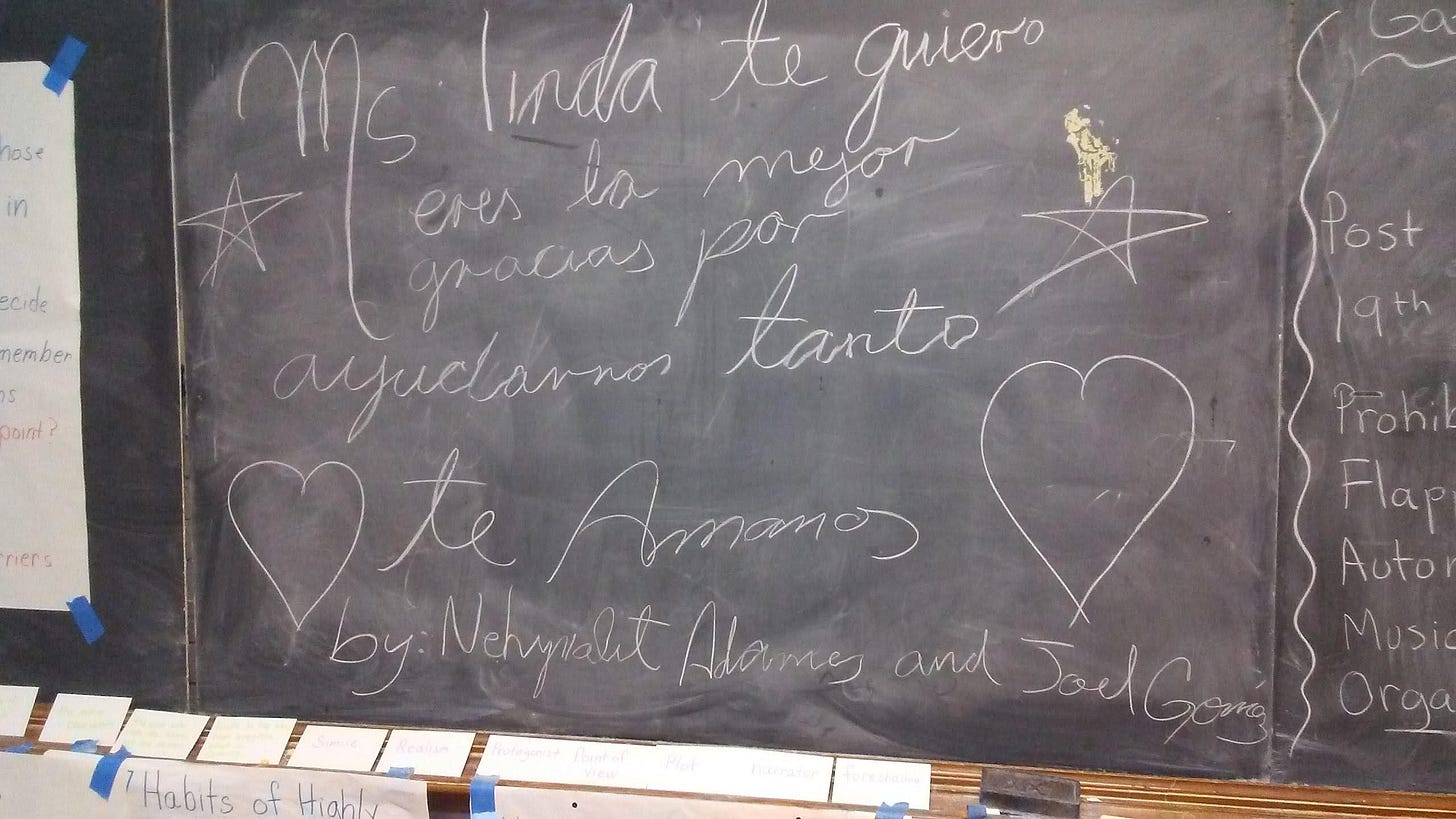 hose
in
ecide
member
ns
point?
rriers
Ms linda te quiero
eres la mejor
gracias por
ayudarnos tanto
te Amamos
by: and Joel
Ga
Post
19th
Prohib
Flap
Autom
Music
Orga
Simile
Realism
Protagonist
Point of
view
Plot
Narrator
foreshadow
7 Habits of Highly